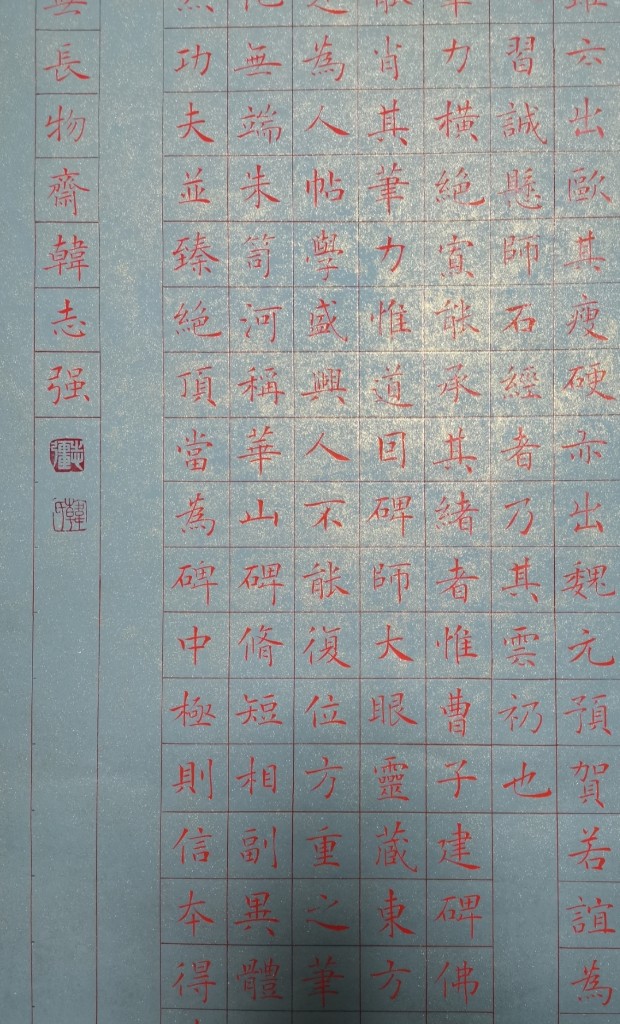 六出歐其瘦硬亦出魏元預賀若誼為
習誠懸師石經者乃其雲礽也
力橫絕實能承其緒者惟曹子建碑佛
肖其筆力惟道回碑師大眼靈藏東方
為人帖學盛興人不能復位方重之筆
無端朱笥河稱華山碑脩短相副異體
功夫並臻絕頂當為碑中極則信本得
無長物齋韓志强